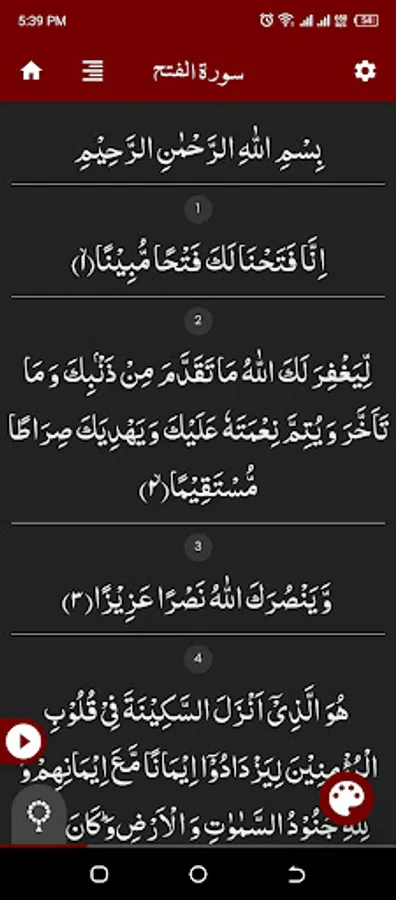 5:39 PM 54
سورة الفتح
بِسْمِ اللهِ الرَّحْمٰنِ الرَّحِيْمِ
1
اِنَّا فَتَحْنَا لَكَ فَتْحًا مُّبِيْنًا(۱)
2
لِّيَغْفِرَ لَكَ اللهُ مَا تَقَدَّمَ مِنْ ذَنْۢبِكَ وَ مَا
تَاَخَّرَ وَ يُتِمَّ نِعْمَتَهٗ عَلَيْكَ وَ يَهْدِيَكَ صِرَاطًا
مُّسْتَقِيْمًا(۲)
3
وَّ يَنْصُرَكَ اللهُ نَصْرًا عَزِيْزًا(۳)
4
هُوَ الَّذِيْۤ اَنْزَلَ السَّكِيْنَةَ فِيْ قُلُوْبِ
الْمُؤْمِنِيْنَ لِيَزْدَادُوْۤا اِيْمَانًا مَّعَ اِيْمَانِهِمْ وَ
لِلّٰهِ جُنُوْدُ السَّمٰوٰتِ وَ الْاَرْضِ وَ كَانَ